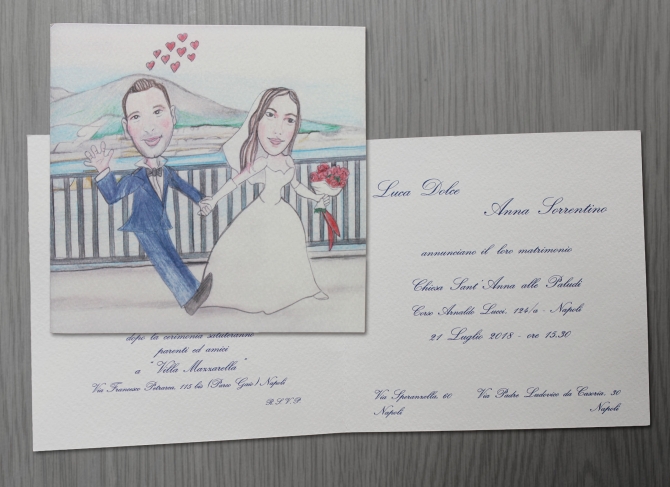 Luca Dolce
Anna Sorrentino
annunciano il loro matrimonio
Chiesa Sant'Anna alle Paludi
Corso Arnaldo Lucci, 124/a - Napoli
21 Luglio 2018 - ore 15.30
Via Speranzella, 60
Napoli
Via Padre Ludovico da Casoria, 30
Napoli
dopo la cerimonia saluteranno
parenti ed amici
a "Villa Mazzarella"
Via Francesco Petrarca, 115 bis (Parco Gaia) Napoli
R.S.V.P.